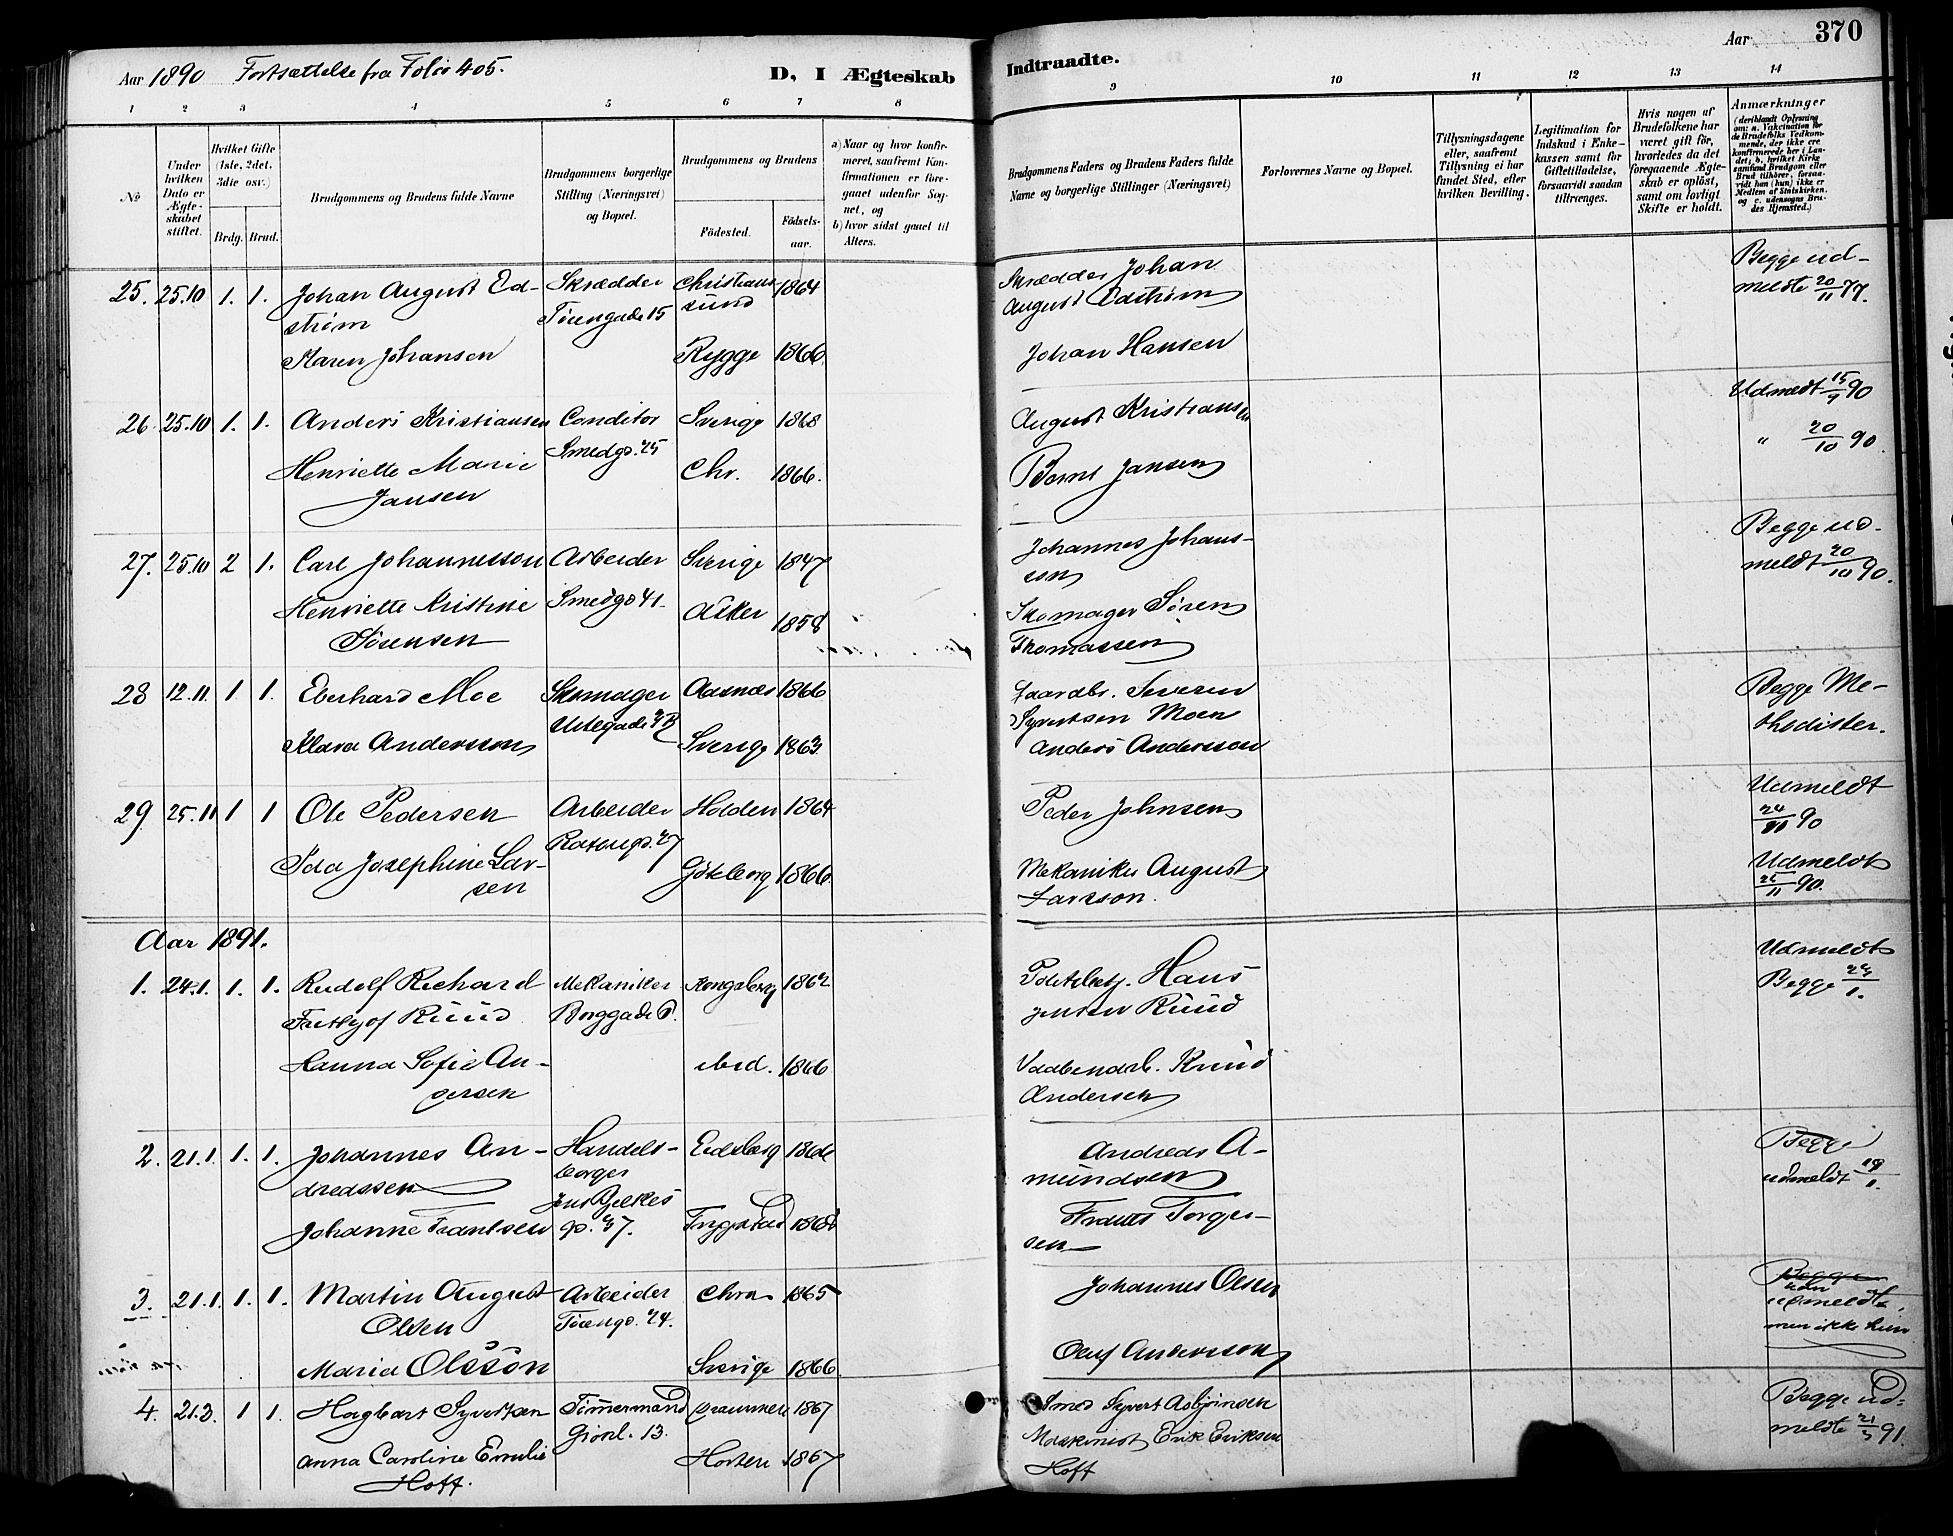 Aar 1890 Fortsættelse fra Folio 405.
D, I Ægteskab
Indtraadte.
Aar
370
1 2 3 4 5 6 7 8 9 10 11 12 13 14
No
Under hvilken Dato er Ægteskabet stiftet.
Hvilket Gifte (1ste, 2det, 3die osv.)
Brdg. Brud.
Brudgommens og Brudens fulde Navne
Brudgommens borgerlige Stilling (Næringsvei) og Bopæl.
Brudgommens og Brudens
Fødested. Fødsels-aar.
a) Naar og hvor konfirmeret, saafremt Konfirmationen er foregaaet udenfor Sognet, og
b) hvor sidst gaaet til Alters.
Brudgommens Faders og Brudens Faders fulde Navne og borgerlige Stillinger (Næringsvei)
Forlovernes Navne og Bopæl.
Tillysningsdagene eller, saafremt Tillysning ei har fundet Sted, efter hvilken Bevilling.
Legitimation for Indskud i Enkekassen samt for Giftetilladelse, forsaavidt saadan tiltrænges.
Hvis nogen af Brudefolkene har været gift før, hvorledes da det foregaaende Ægteskab er opløst, samt om lovligt Skifte er holdt.
Anmærkninger (deriblandt Oplysning om: a. Vakcination for de Brudefolks Vedkommende, der ikke ere konfirmerede her i Landet; b. hvilket Kirkesamfund Brudgom eller Brud tilhører, forsaavidt han (hun) ikke er Medlem af Statskirken, og c. udensogns Brudes Hjemsted.)
25. 25.10 1. 1. Johan August Ed- Skrædder Christian- 1864 Skrædder Johan Begge ud-
strøm Tøiengade 15 sund August Edstrøm meldte 20/11 77.
Karen Johansen Rygge 1866 Johan Hansen
26. 25.10 1. 1. Anders Kristiansen Conditor Sverige 1868 August Kristiansen Udmeldt 15/9 90
Henriette Marie Smedgd. 25 Chr. 1866. Bernt Jansen " 20/10 90.
Jansen
27. 25.10 2 1. Carl Johannesson Arbeider Sverige 1847 Johannes Johans- Begge ud-
Henriette Kristine Smedgd 41. Asker 1858 son meldt 20/10 90.
Sørensen Skomager Søren
Thomassen
28 12.11 1 1. Eberhard Moe Skomager Aasnæs 1866 Gaardbr. Severin Begge Me-
Syvertsen Moen thodister.
Klara Andersson Sverige 1863 Anders Andersson
29 25.11 1 1 Ole Pedersen Arbeider Holden 1864 Peder Johnsen Udmeldt
24/11 90
Ida Josephine Lar- Göteborg 1866 Mekaniker August Udmeldt
sen Larsson. 25/11 90.
Aar 1891.
1. 24.1. 1. 1. Rudolf Richard Mekaniker Kongsberg 1862 Hans Udmeldt
Frithjof Ruud Borggade Jensen Ruud Begge
Hanna Sofie An- ibid. 1866 Vaabenarb. Knud
dersen Andersen
2. 21.1. 1. 1. Johannes An- Handels- Eidsberg 1866 Andreas A- Begge
dreassen borger mundsen udmeldt
Jens Bjelkes
Johanne Frantsen gd. 37. Trygstad 1868 Frants Torger-
sen
3. 21.1. 1. 1. Martin August Arbeider Chra 1865 Johannes Olsen Begge
Olsen Tøiengd. 24. udmeldte,
men ikke hun
Maria Olsson Sverige 1866. Oluf Andersson
4. 21.3. 1 1. Hagbart Syvertsen Tømmermand Drammen 1867 Smed Syvert Asbjørnsen Begge ud-
Grønl. 13. meldte 21/3 91.
Anna Caroline Emilie Horten 1867 Maskinist Erik Eriksen
Hoff. Hoff